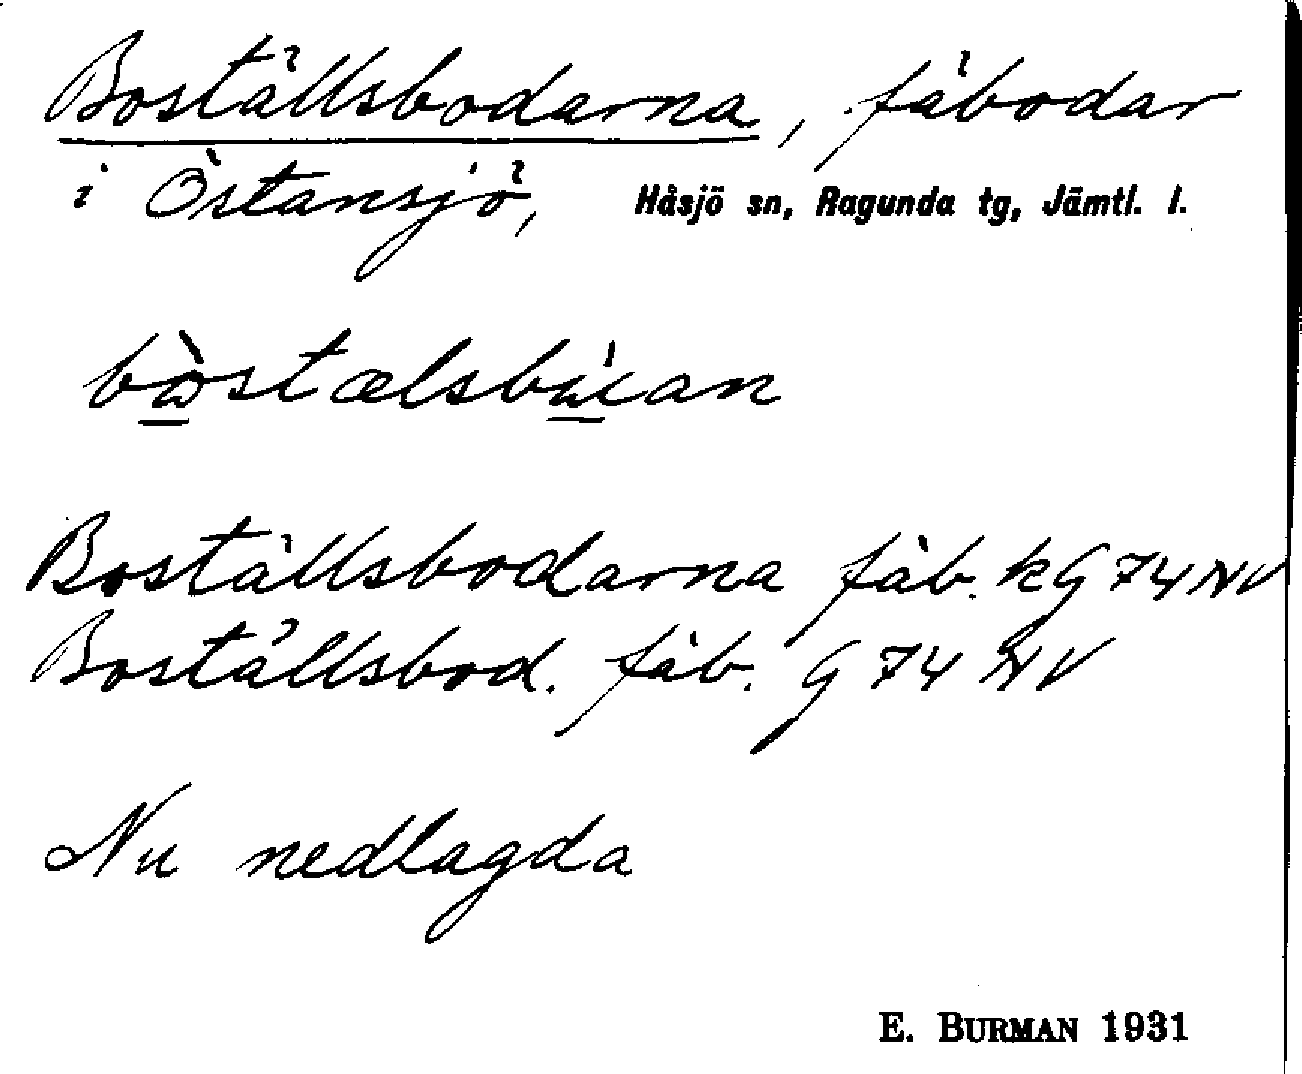 Boställsbodarna, fäbodar
i Östansjö, Håsjö sn, Ragunda tg, Jämtl. l.
bòstælsbúan
Boställsbodarna fäb. kG 74 NV
Boställsbod. fäb. G 74 NV
Nu nedlagda
E. BURMAN 1931